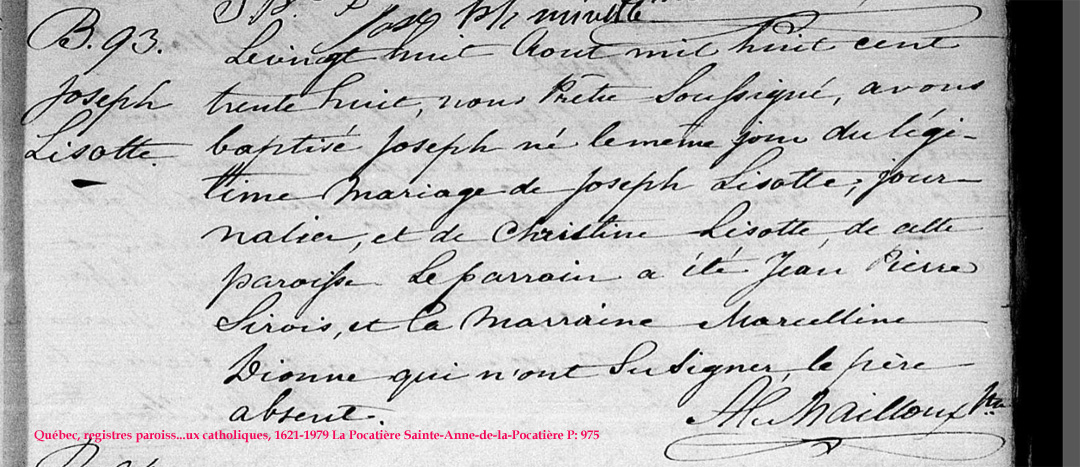 B. 93.
Joseph
Lisotte.
Le vingt huit Aout mil huit cent
trente huit, nous Prêtre Soussigné, avons
baptisé Joseph né le même jour du légi-
time Mariage de Joseph Lisotte, jour-
nalier, et de Christine Lisotte, de cette
paroisse Le parrain a été Jean Pierre
Sirois, et la Marraine Marcelline
Dionne qui n'ont Su Signer, le père
absent.
Mailloux Ptre
Québec, registres paroiss...ux catholiques, 1621-1979 La Pocatière Sainte-Anne-de-la-Pocatière P: 975